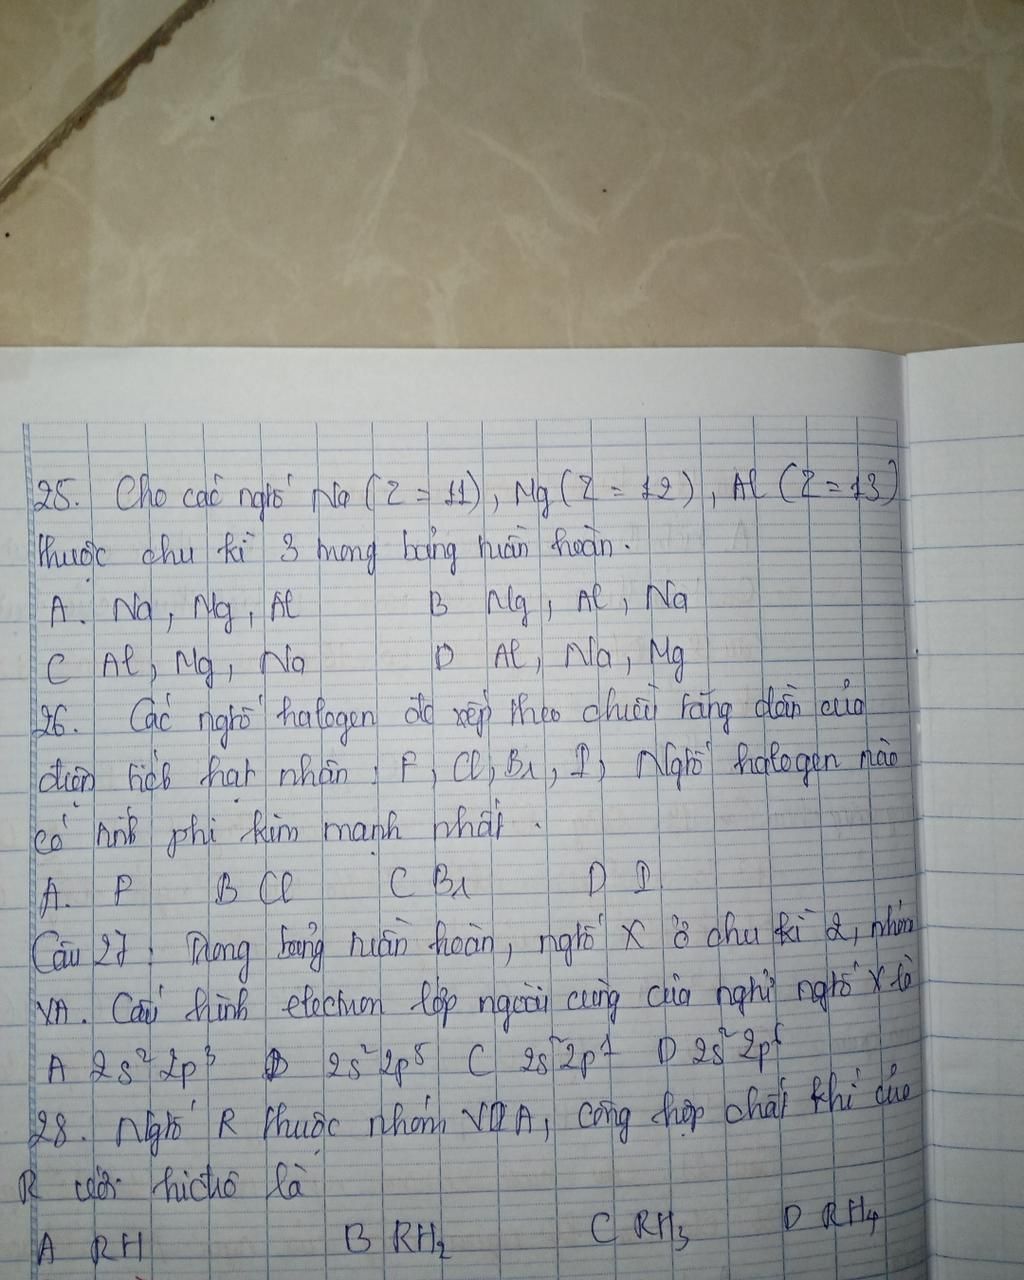 25. Cho các ngtố Na (Z = 11), Mg (Z = 12), Al (Z = 13)
thuộc chu kì 3 trong bảng tuần hoàn.
A. Na, Mg, Al B Mg, Al, Na
C Al, Mg, Na D Al, Na, Mg
26. Các ngtố halogen đc xếp theo chiều tăng dần của
điện tích hạt nhân F, Cl, Br, I, Ngtố halogen nào
có tính phi kim mạnh nhất.
A. F B Cl C Br D I
Câu 27: Trong bảng tuần hoàn, ngtố X ở chu kì 2, nhóm
VA. Cấu hình electron lớp ngoài cùng của ngtử ngtố X là
A 2s² 2p³ 2s² 2p⁵ C 2s² 2p D 2s² 2p
28. Ngtố R thuộc nhóm A, công hợp chất khí của
R với hiđrô là
A RH B RH₂ C RH₃ D RH₄